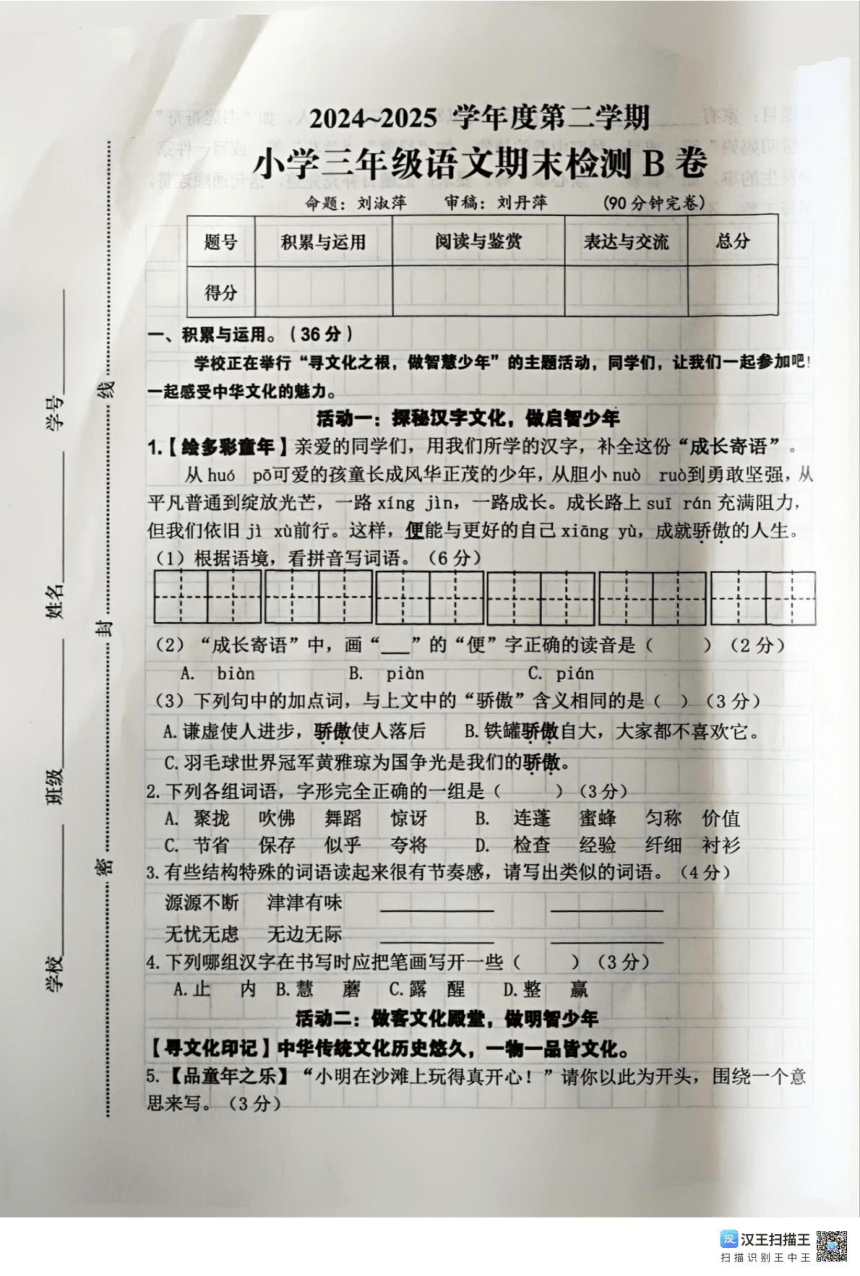 2024~2025 学年度第二学期
小学三年级语文期末检测 B 卷
命题：刘淑萍 审稿：刘丹萍 （90 分钟完卷）
题号 积累与运用 阅读与鉴赏 表达与交流 总分
得分
一、积累与运用。（36 分）
学校正在举行“寻文化之根，做智慧少年”的主题活动，同学们，让我们一起参加吧！
一起感受中华文化的魅力。
活动一：探秘汉字文化，做启智少年
1.【绘多彩童年】亲爱的同学们，用我们所学的汉字，补全这份“成长寄语”。
从 huó pō可爱的孩童长成风华正茂的少年，从胆小 nuò ruò到勇敢坚强，从
平凡普通到绽放光芒，一路 xíng jìn，一路成长。成长路上 suī rán 充满阻力，
但我们依旧 jì xù前行。这样，便能与更好的自己 xiāng yù，成就骄傲的人生。
（1）根据语境，看拼音写词语。（6 分）
（2）“成长寄语”中，画“___”的“便”字正确的读音是（ ）（2 分）
A. biàn B. piàn C. pián
（3）下列句中的加点词，与上文中的“骄傲”含义相同的是（ ）（3 分）
A. 谦虚使人进步，骄傲使人落后 B. 铁罐骄傲自大，大家都不喜欢它。
C. 羽毛球世界冠军黄雅琼为国争光是我们的骄傲。
2. 下列各组词语，字形完全正确的一组是（ ）（3 分）
A. 聚拢 吹佛 舞蹈 惊讶 B. 连蓬 蜜蜂 匀称 价值
C. 节省 保存 似乎 夸将 D. 检查 经验 纤细 衬衫
3. 有些结构特殊的词语读起来很有节奏感，请写出类似的词语。（4 分）
源源不断 津津有味 __________ __________
无忧无虑 无边无际 __________ __________
4. 下列哪组汉字在书写时应把笔画写开一些（ ）（3 分）
A. 止 内 B. 慧 蘑 C. 露 醒 D. 整 赢
活动二：做客文化殿堂，做明智少年
【寻文化印记】中华传统文化历史悠久，一物一品皆文化。
5. 【品童年之乐】“小明在沙滩上玩得真开心！”请你以此为开头，围绕一个意
思来写。（3 分）
学校 班级 姓名 学号
密 封 线
汉王扫描王
扫描识别王中王